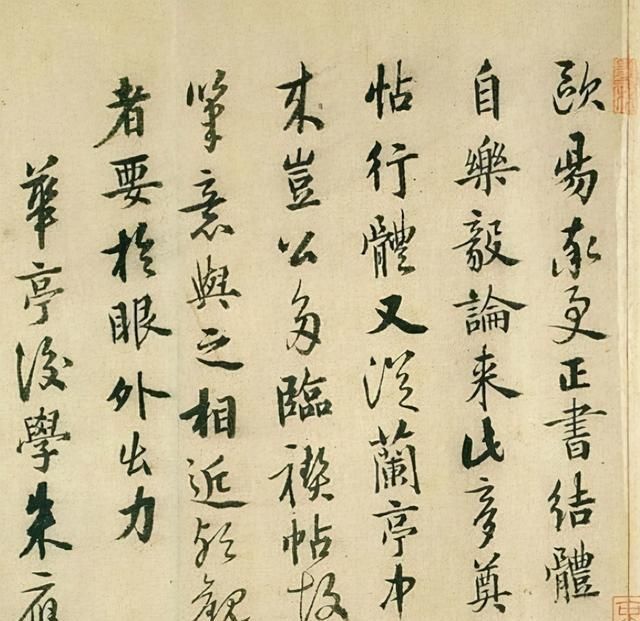 歐昜率更正書結體
自樂毅論来此夢奠
帖行體又從蘭亭中
来豈公多臨禊帖故
筆意與之相近歟觀
者要於眼外出力
華亭後學朱應